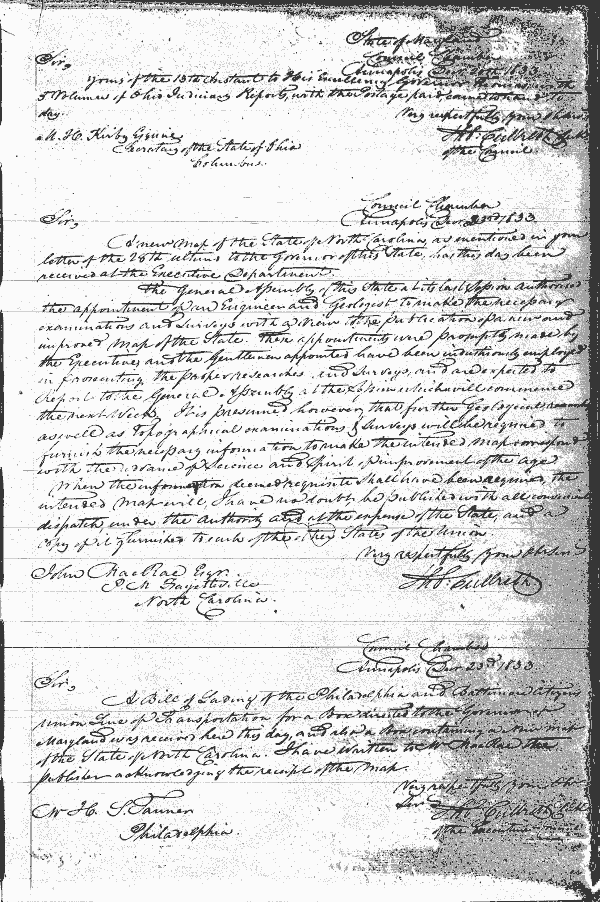 State of Maryland
Council Chamber
Annapolis Dec. 1833
Sir,
Yours of the 13th Instant to His Excellency Governor Thomas, with
3 Volumes of Ohio Judiciary Reports, with the Postage paid, came to hand to
day.
Very respectfully your
Th. Culbreth Clk
of the Council
M. H. Kirby Esquire
Secretary of the State of Ohio
Columbus.
Council Chamber
Annapolis Dec. 23rd 1833
Sir,
A new Map of the State of North Carolina, as mentioned in your
letter of the 28th ultimo to the Governor of this State, has this day been
received at the Executive Department.
The General Assembly of this State at its last Session authorised
the appointment of an Engineer and Geologist to make the necessary
examinations and Surveys with a view to the publication of a new and
improved Map of the State. These appointments were promptly made by
the Executive, and the Gentlemen appointed have been industriously employed
in prosecuting the proper researches and Surveys, and are expected to
report to the General Assembly at the Session which will commence
the next Week. It is presumed however, that further Geological
as well as Topographical examinations & Surveys will be required to
furnish the necessary information to make the intended Map correspond
with the advance of Science and Spirit of improvement of the age
When the information deemed requisite Shall have been acquired, the
intended Map will, I have no doubt, be published with all convenient
dispatch, under the Authority and at the expense of the State, and a
Copy of it furnished to each of the other States of the Union.
Very respectfully your Ob. Serv
Th. Culbreth
John MacRae Esqr.
P. M. Fayetteville
North Carolina.
Council Chamber
Annapolis Decr 23d 1833
Sir,
A Bill of Lading of the Philadelphia and Baltimore Citizens
union Line of Transportation for a Box directed to the Governor of
Maryland was received here this day, and also a Box containing a New map
of the State of North Carolina. I have written to Mr MacRae the
publisher acknowledging the receipt of the Map.
Very respectfully your Ob.
Ser.
Th. Culbreth Clk
of the Executive Council
Mr H. S. Tanner
Philadelphia.